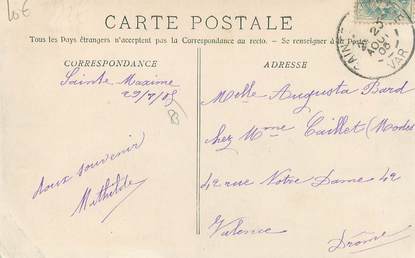 10€
CARTE POSTALE
Tous les Pays étrangers n'acceptent pas la Correspondance au recto. — Se renseigner à la Poste
CORRESPONDANCE
Sainte Maxime
doux souvenir
Mathilde
ADRESSE
Melle Augusta Bard
chez Mme Caillet (Modes
42 rue Notre Dame 42
Valence
Drôme
VAR